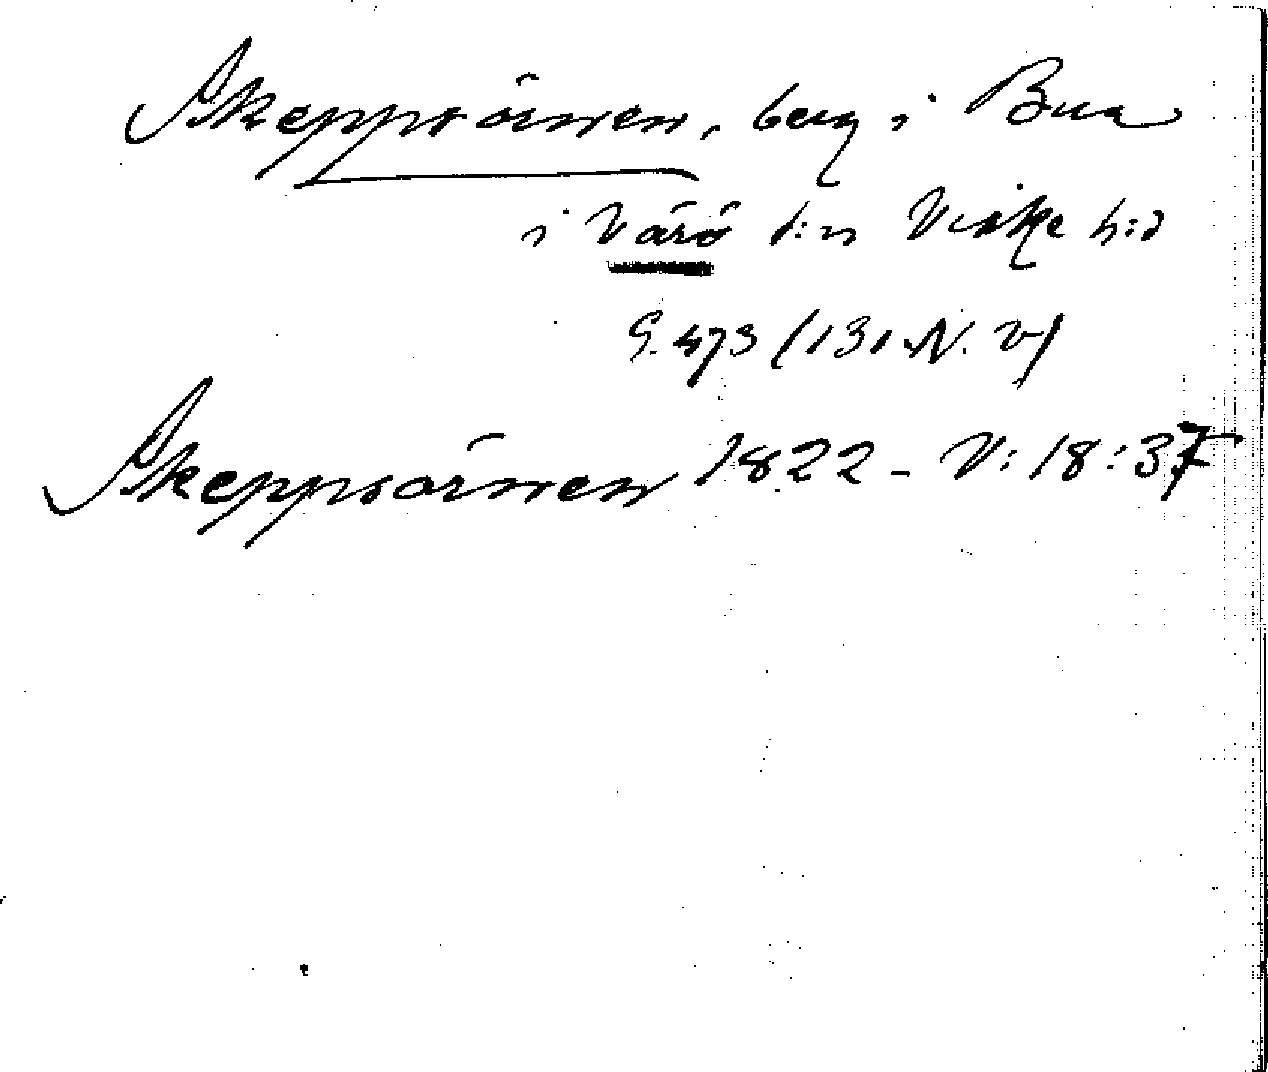 Skeppsörnen, berg i Bua
i Värö s:n Viske h:d
G. 473 (131 N. V)
Skeppsörnen 1822 - V: 18:37